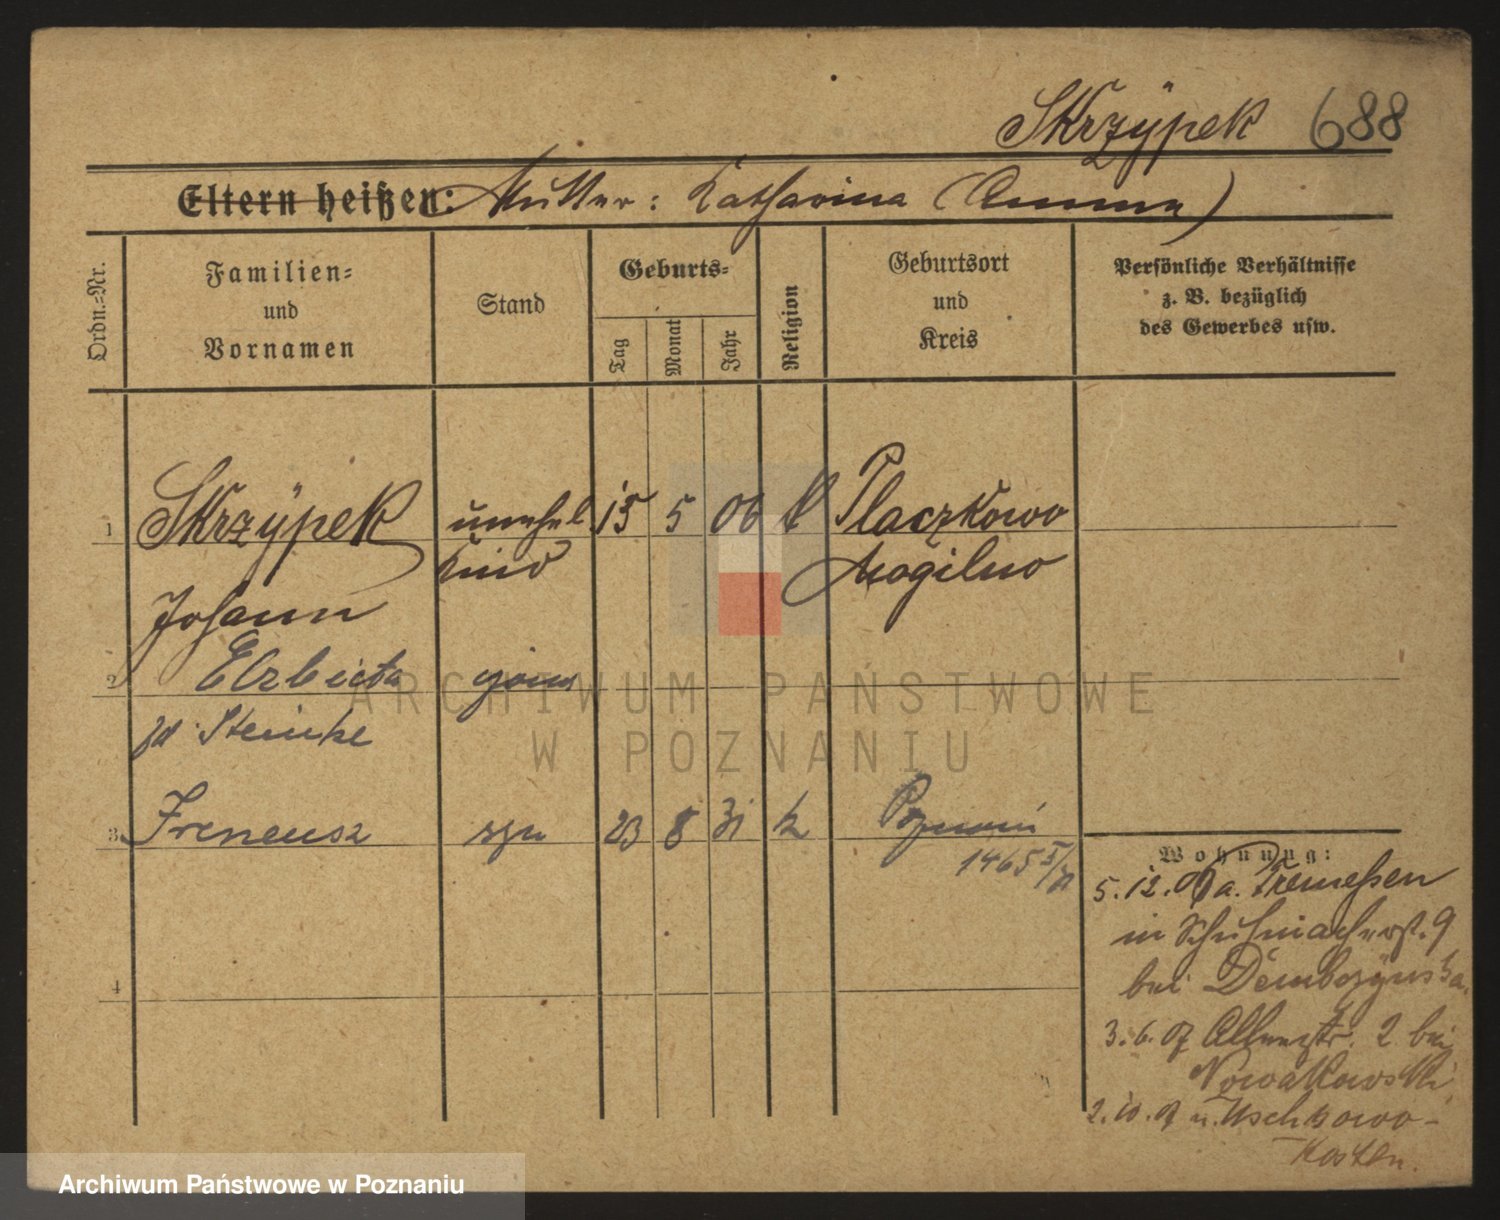 Skrzÿpek 688
Eltern heißen: Mutter: Katharina (Amme)
Ordn.=Nr.
Familien=
und
Vornamen
Stand
Geburts=
Tag
Monat
Jahr
Religion
Geburtsort
und
Kreis
Persönliche Verhältnisse
z. B. bezüglich
des Gewerbes usw.
1 Skrzÿpek unehel. 15 5 06 k Placzkowo
Kind Mogilno
Johann
2 Elzbieta żona
zd Steinke
3 Ireneusz syn 23 8 31 k Poznań
1465
Wohnung:
5.12.06 a. Tremeßen
in Schuhmacherst. 9
bei Dembczÿnska.
3.6.07 Allerstr. 2 bei
Nowakowski
2.10.07 n. Uschkowo-
Kosten.
4
ARCHIWUM PAŃSTWOWE
W POZNANIU
Archiwum Państwowe w Poznaniu